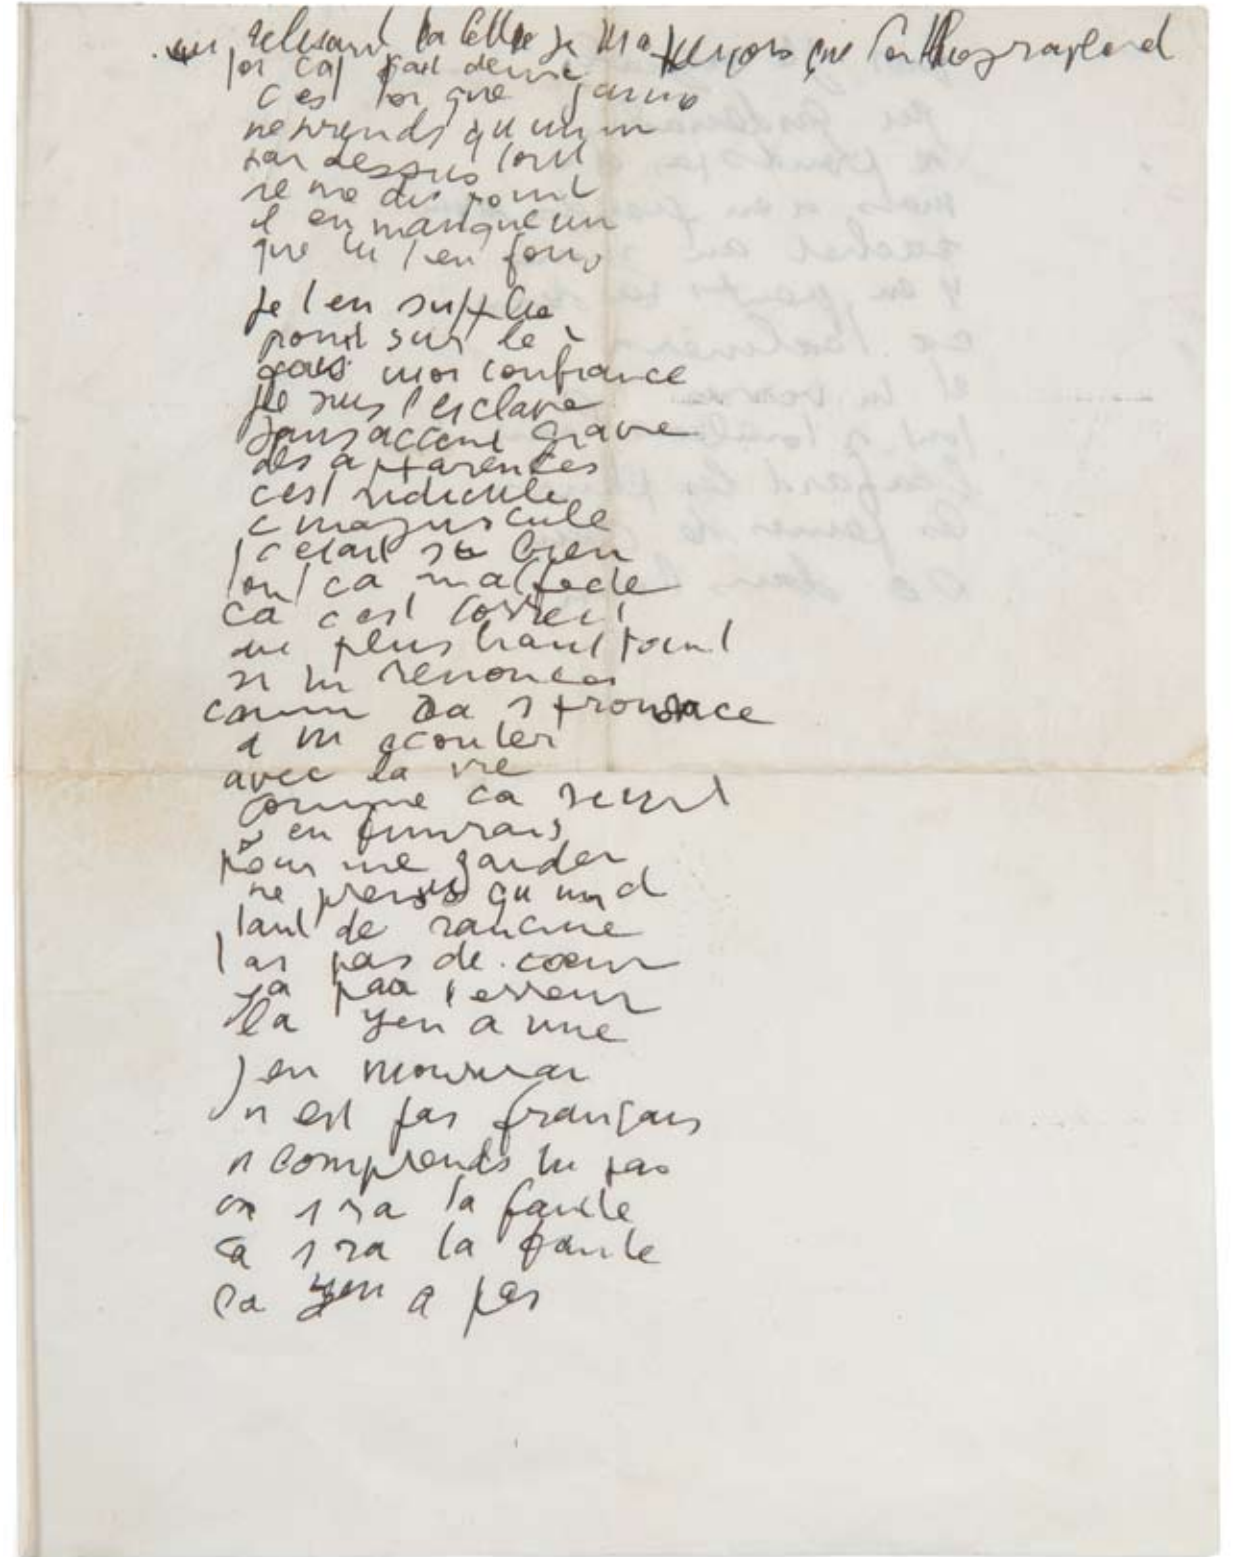 en relisant ta lettre je m'aperçois que l'orthographe et
toi ca fait deux
c'est toi que j'aime
ne prends qu'un m
par dessus tout
ne me dis point
il en manque un
que tu t'en fous
je t'en supplie
point sur le i
fais moi confiance
je suis l'esclave
sans accent grave
des apparences
c'est ridicule
c majuscule
c etait si bien
tout ca m'affecte
ca c'est correct
au plus haut point
si tu renonces
comm ca s prononce
a m ecouter
avec la vie
comme ca seul
j en finirais
pour me garder
ne prends qu un d
tant de rancune
t as pas de cœur
y a pas l'erreur
la yen a une
j en mourrirai
n est pas français
n comprends tu pas
ca s'ra ta faute
ca s'ra ta faute
ca yen a pas